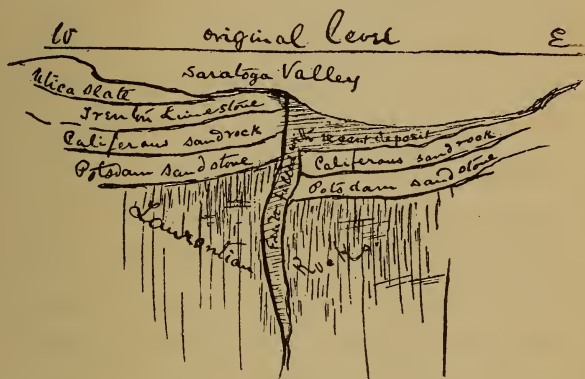 W original level E
Saratoga Valley
Utica Slate
Trenton Limestone
Califerous sandrock
Potsdam sandstone
Fault filled with recent deposit
Califerous sandrock
Potsdam sandstone
Laurentian Rocks.